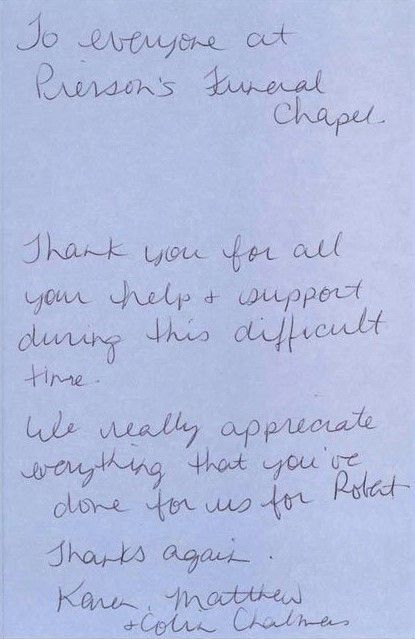 To everyone at
Pierson's Funeral
Chapel.
Thank you for all
your help + support
during this difficult
time.
We really appreciate
everything that you've
done for us for Robert
Thanks again.
Karen, Matthew
+ Colin Chalmers